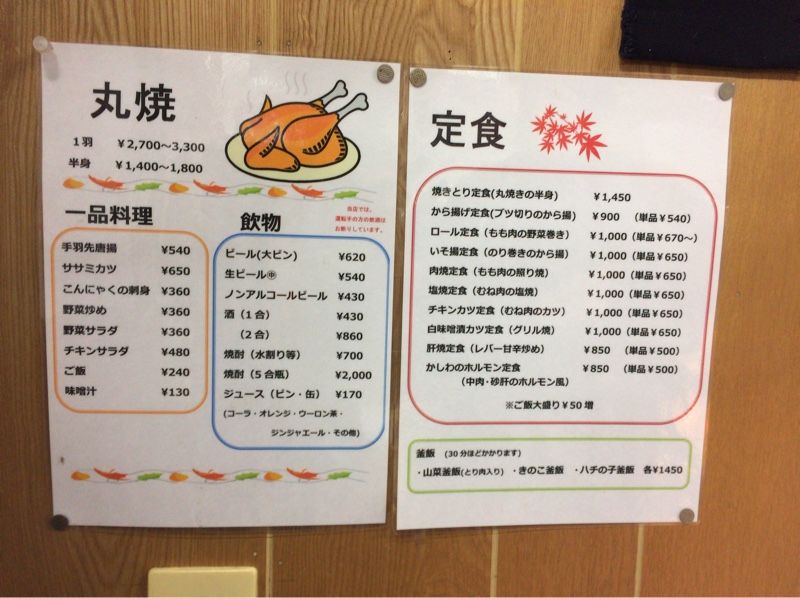 丸焼
1羽 ¥2,700～3,300
半身 ¥1,400～1,800
当店では、
運転手の方の飲酒は
お断りしています。
一品料理
手羽先唐揚 ¥540
ササミカツ ¥650
こんにゃくの刺身 ¥360
野菜炒め ¥360
野菜サラダ ¥360
チキンサラダ ¥480
ご飯 ¥240
味噌汁 ¥130
飲物
ビール(大ビン) ¥620
生ビール㊥ ¥540
ノンアルコールビール ¥430
酒（1合） ¥430
（2合） ¥860
焼酎（水割り等） ¥700
焼酎（5合瓶） ¥2,000
ジュース（ビン・缶） ¥170
(コーラ・オレンジ・ウーロン茶・
ジンジャエール・その他)
定食
焼きとり定食(丸焼きの半身) ¥1,450
から揚げ定食(ブツ切りのから揚) ¥900 （単品¥540）
ロール定食（もも肉の野菜巻き） ¥1,000（単品¥670～）
いそ揚定食（のり巻きのから揚） ¥1,000（単品¥650）
肉焼定食（もも肉の照り焼） ¥1,000（単品¥650）
塩焼定食（むね肉の塩焼） ¥1,000（単品¥650）
チキンカツ定食（むね肉のカツ） ¥1,000（単品¥650）
白味噌漬カツ定食（グリル焼） ¥1,000（単品¥650）
肝焼定食（レバー甘辛炒め） ¥850 （単品¥500）
かしわのホルモン定食 ¥850 （単品¥500）
（中肉・砂肝のホルモン風）
※ご飯大盛り¥50増
釜飯 （30分ほどかかります）
・山菜釜飯(とり肉入り) ・きのこ釜飯 ・ハチの子釜飯 各¥1450